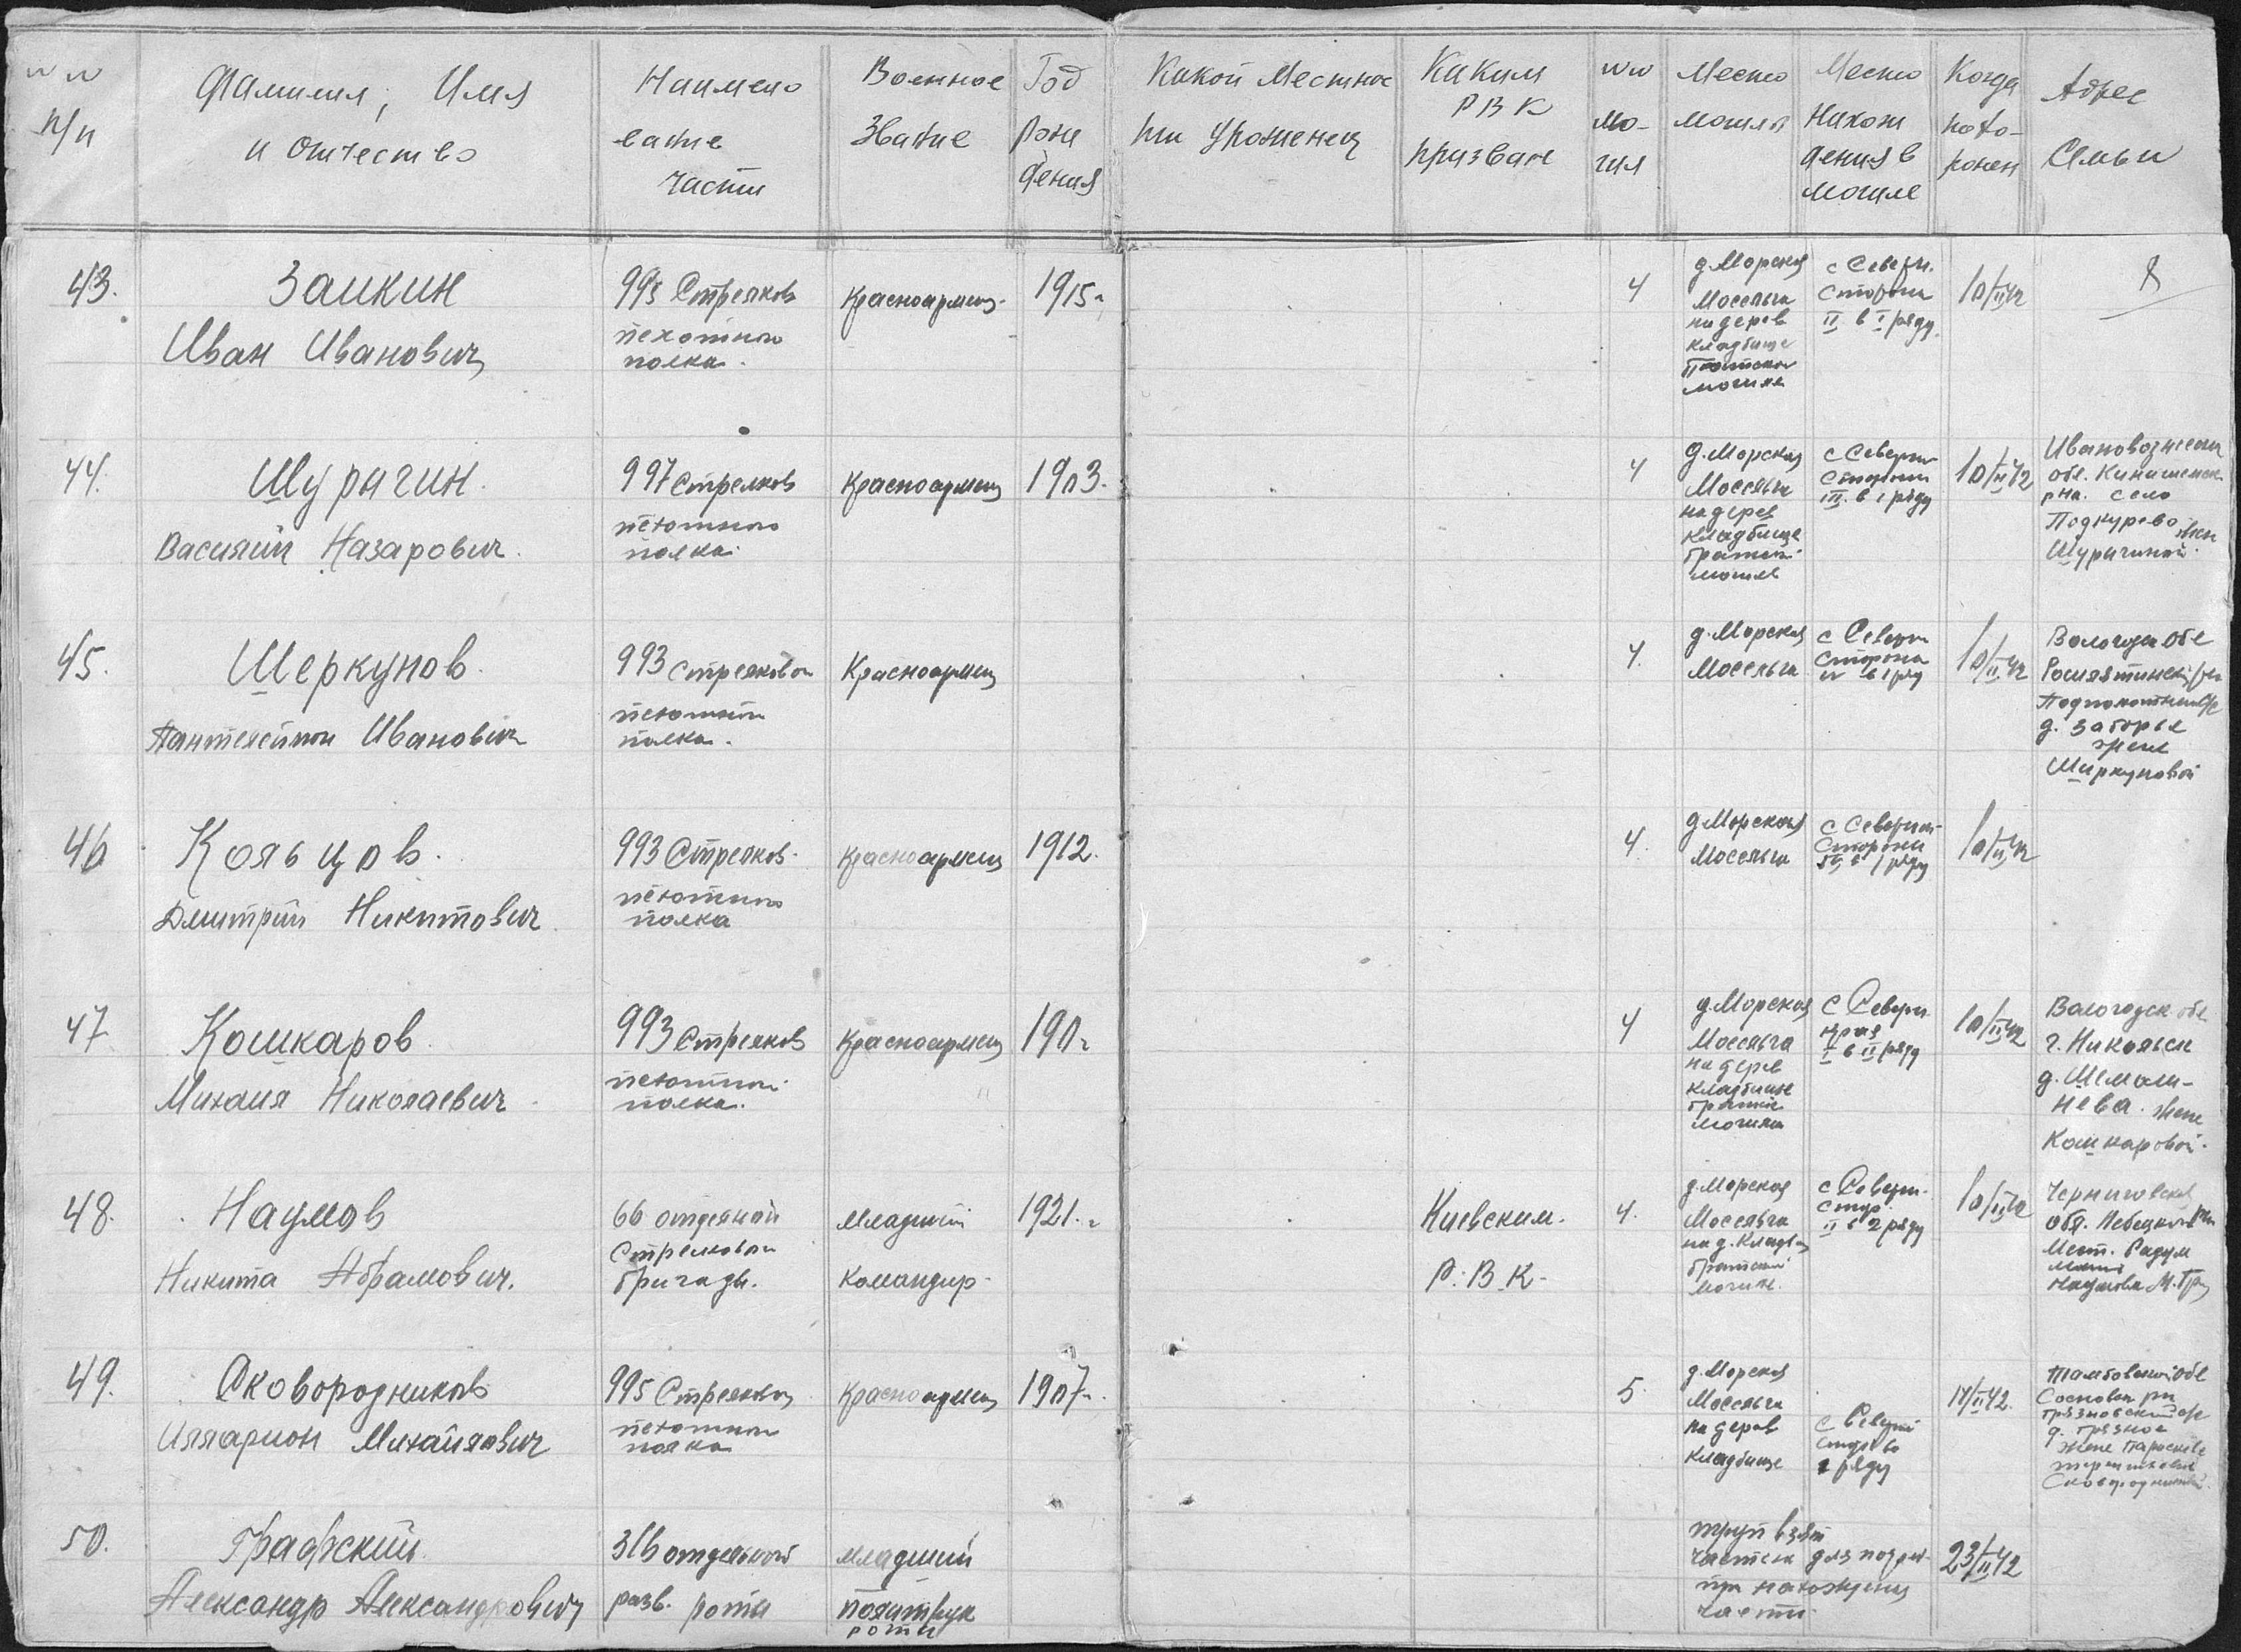 № №
п/п
Фамилия, Имя
и Отчество
Наимено
вание
части
Военное
Звание
Год
рож
дения
Какой местнос
ти уроженец
Каким
РВК
призван
№ №
мо-
гил
Место
могилы
Место
Нахож
дения в
могиле
Когда
похо-
ронен
Адрес
Семьи
43.
Заикин
Иван Иванович
995 Стрелков
пехотного
полка.
Красноармеец.
1915 г
4
д. Морская
Мосельга
на дерев
кладбище
могила
с Северн.
Стороны
II в I ряду.
10/II 42
44.
Шурагин.
Василий Назарович.
997 Стрелков
пехотного
полка.
Красноармеец
1903.
4
д. Морская
Мосельга
на дерев
кладбище
братск.
могиле
с Северн
Стороны
III. в I ряду
10/II 42
Ивановознесен
обл. Кинешемск.
рна. село
Подкурево жен
Шурагиной.
45.
Шеркунов.
Пантелеймон Иванович
993 стрелковом
пехотном
полка.
Красноармеец
4.
д. Морская
Мосельга
с Северн
Стороны
IV в I ряд
10/II 42
Вологодск обл
д. Заборье
жене
Ширкуновой
46
Кольцов.
Дмитрий Никитович.
993 Стрелков.
пехотного
полка
Красноармеец
1912.
4.
д. Морская
Мосельга
с Северной
Стороны
в I ряду
10/II 42
47
Кошкаров.
Михаил Николаевич.
993 Стрелков
пехотном.
полка.
Красноармеец
190 г
4
д. Морская
Мосельга
на дерев
кладбище
братские
могила
с Северн.
края
I в II ряду
10/II 42
Вологодск обл
г. Никольск
д. Шемаш-
нева. жене
Кошкаровой.
48.
Наумов
Никита Абрамович.
66 отдельной
Стрелковой
бригады.
Младший
Командир.
1921. г
Киевским.
Р. В. К.
4.
д. Морская
Мосельга
на д. Кладб
братской
могил.
с Северн.
стор.
II в 2 ряду
10/II 42
Черниговской
обл.
Мест. Радул
Наумова М. Гр
49.
Сковородников
Илларион Михайлович
995 Стрелков
пехотном
полка
Красноармеец
1907 г.
5.
д. Морская
Мосельга
на дерев
кладбище
с Северной
стор во
2 ряду
11/II 42.
Тамбовской обл
Сосновск рн
Грязновский с/с
д. Грязное
жене
50.
Графский.
Александр Александрович
316 отдельной
разв. роты
младший
политрук
роты
труп взят
частью для похор.
при нахождении
части.
23/II 42